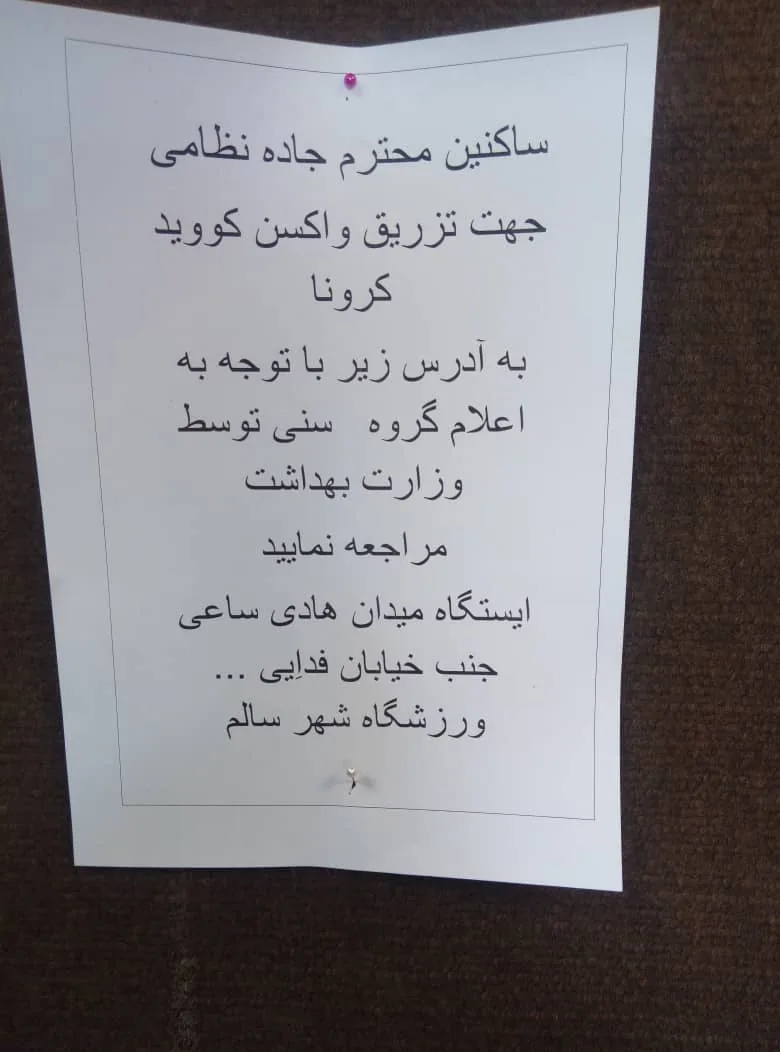 ساکنین محترم جاده نظامی
جهت تزریق واکسن کووید
کرونا
به آدرس زیر با توجه به
اعلام گروه سنی توسط
وزارت بهداشت
مراجعه نمایید
ایستگاه میدان هادی ساعی
جنب خیابان فداِیی ...
ورزشگاه شهر سالم